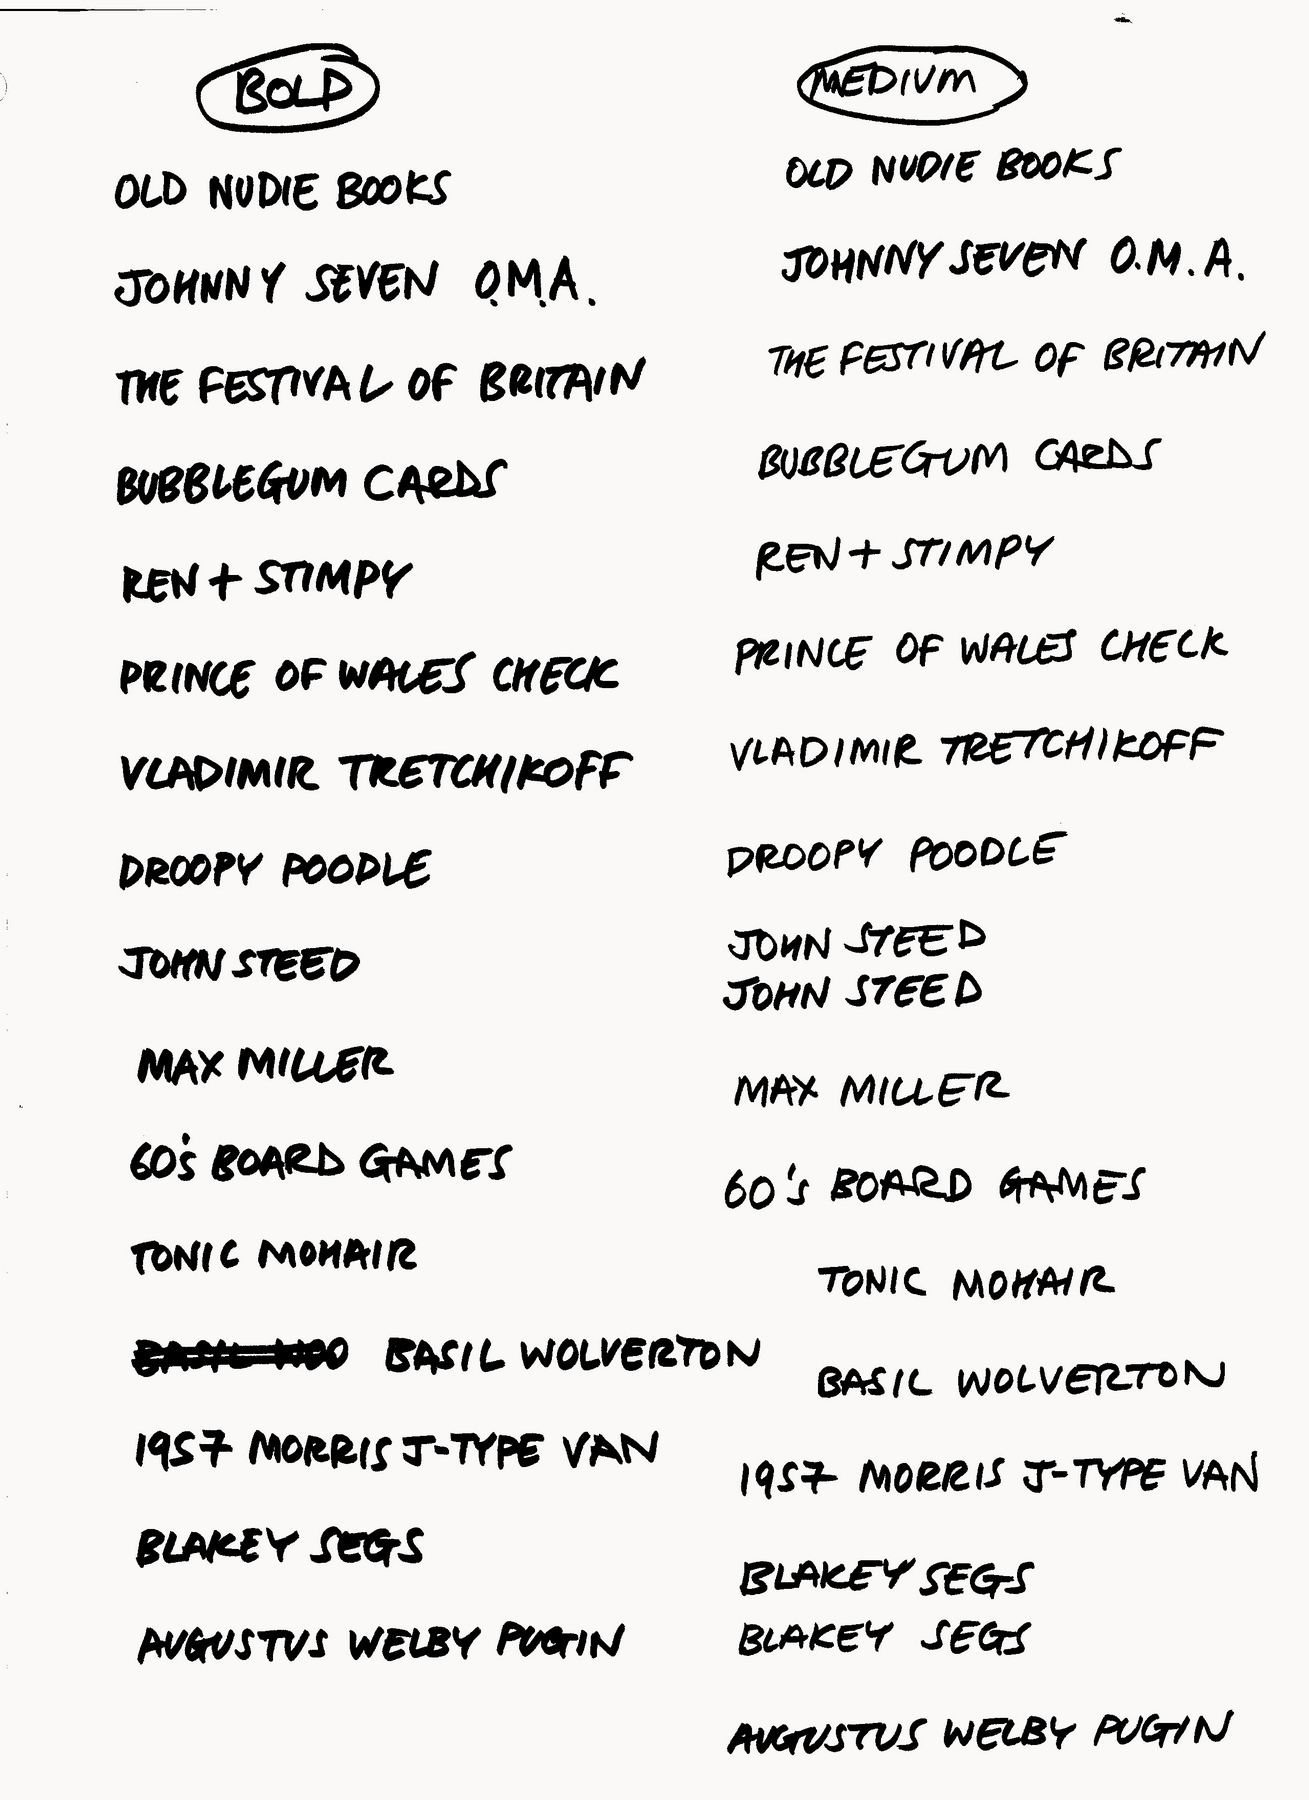 BOLD
OLD NUDIE BOOKS
JOHNNY SEVEN O.M.A.
THE FESTIVAL OF BRITAIN
BUBBLEGUM CARDS
REN + STIMPY
PRINCE OF WALES CHECK
VLADIMIR TRETCHIKOFF
DROOPY POODLE
JOHN STEED
MAX MILLER
60's BOARD GAMES
TONIC MOHAIR
BASIL WOLVERTON
1957 MORRIS J-TYPE VAN
BLAKEY SEGS
AUGUSTUS WELBY PUGIN
MEDIUM
OLD NUDIE BOOKS
JOHNNY SEVEN O.M.A.
THE FESTIVAL OF BRITAIN
BUBBLEGUM CARDS
REN + STIMPY
PRINCE OF WALES CHECK
VLADIMIR TRETCHIKOFF
DROOPY POODLE
JOHN STEED
JOHN STEED
MAX MILLER
60's BOARD GAMES
TONIC MOHAIR
BASIL WOLVERTON
1957 MORRIS J-TYPE VAN
BLAKEY SEGS
BLAKEY SEGS
AUGUSTUS WELBY PUGIN